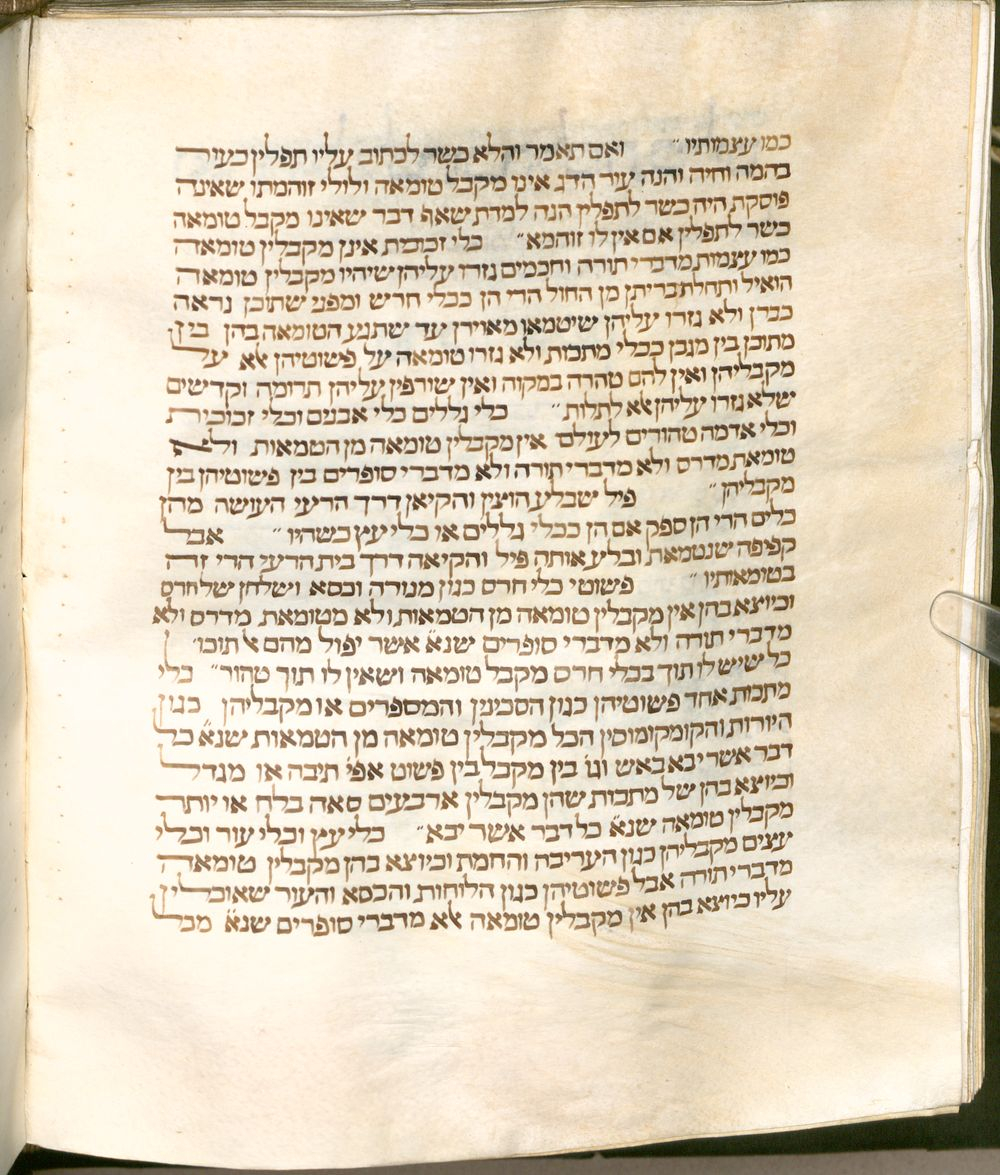 כמו עצמותיו ״ ואם תאמר והלא כשר לכתוב עליו תפלין כעור
בהמה וחיה והנה עור הדג אינו מקבל טומאה ולולי זוהמתו שאינה
פוסקת היה כשר לתפלין הנה למדת שאף דבר שאינו מקבל טומאה
כשר לתפלין אם אין לו זוהמא ״ כלי זכוכית אינן מקבלין טומאה
כמו עצמות מדברי תורה וחכמים גזרו עליהן שיהיו מקבלין טומאה
הואיל ותחלת ברייתן מן החול הרי הן ככלי חרש ומפני שתוכן נראה
כברן ולא גזרו עליהן שיטמאו מאוירן עד שתגע הטומאה בהן בין
מתוכן בין מגבן ככלי מתכות ולא גזרו טומאה על פשוטיהן אלא על
מקבליהן ואין להם טהרה במקוה ואין שורפין עליהן תרומה וקדשים
שלא גזרו עליהן אלא לתלות ״ כלי גללים כלי אבנים וכלי זכוכית
וכלי אדמה טהורים לעולם אין מקבלין טומאה מן הטמאות ולא
טומאת מדרס ולא מדברי תורה ולא מדברי סופרים בין פשוטיהן בין
מקבליהן ״ פיל שבלע הוצין והקיאן דרך הרעי העושה מהן
כלים הרי הן ספק אם הן ככלי גללים או כלי עץ כשהיו ״ אבל
קפיפה שנטמאת ובלע אותה פיל והקיאה דרך בית הרעי הרי זה
בטומאותיו ״ פשוטי כלי חרס כגון מנורה וכסא ושלחן של חרס
וכיוצא בהן אין מקבלין טומאה מן הטמאות ולא מטומאת מדרס ולא
מדברי תורה ולא מדברי סופרים שנא׳ אשר יפול מהם אל תוכו ״
כל שיש לו תוך בכלי חרס מקבל טומאה ושאין לו תוך טהור ״ כלי
מתכות אחד פשוטיהן כגון הסכינין והמספרים או מקבליהן כגון
היורות והקומקומוסין הכל מקבלין טומאה מן הטמאות שנא׳ כל
דבר אשר יבא באש וגו׳ בין מקבל בין פשוט אפי׳ תיבה או מגדל
וכיוצא בהן של מתכות שהן מקבלין ארבעים סאה בלח או יותר
מקבלין טומאה שנא׳ כל דבר אשר יבא ״ כלי עץ וכלי עור וכלי
עצים מקבליהן כגון העריבה והחמת וכיוצא בהן מקבלין טומאה
מדברי תורה אבל פשוטיהן כגון הלוחות והכסא והעור שאוכלין
עליו כיוצא בהן אין מקבלין טומאה אלא מדברי סופרים שנא׳ מכל